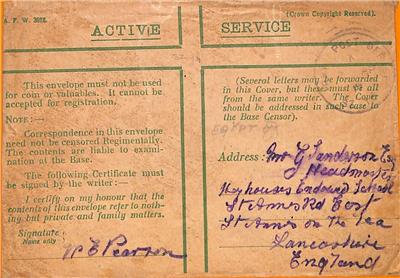 A. F. W. 3078.
(Crown Copyright Reserved).
ACTIVE SERVICE
This envelope must not be used
for coin or valuables. It cannot be
accepted for registration.
NOTE:—
Correspondence in this envelope
need not be censored Regimentally.
The contents are liable to examin-
ation at the Base.
The following Certificate must
be signed by the writer:—
I certify on my honour that the
contents of this envelope refer to noth-
ing but private and family matters.
Signature
Name only
W E Pearson
(Several letters may be forwarded
in this Cover, but these must be all
from the same writer. The Cover
should be addressed in such case to
the Base Censor).
Address:—
Mr G Sanderson Esq
Headmaster
Heyhouses Endowed School
St Annes Rd East
St Annes on the Sea
Lancashire
England